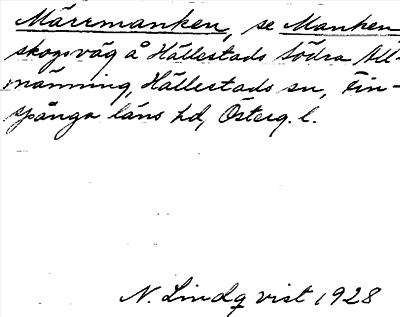 Märrmanken, se Manken
skogsväg å Hällestads Södra All-
männing, Hällestads sn, Fin-
spånga läns hd, Österg. l.
N. Lindqvist 1928